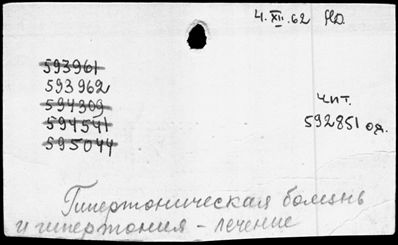 4.XII.62
593961
593962
594309
594541
595044
Чит.
592851 од.
Гипертоническая болезнь
и гипертония - лечение